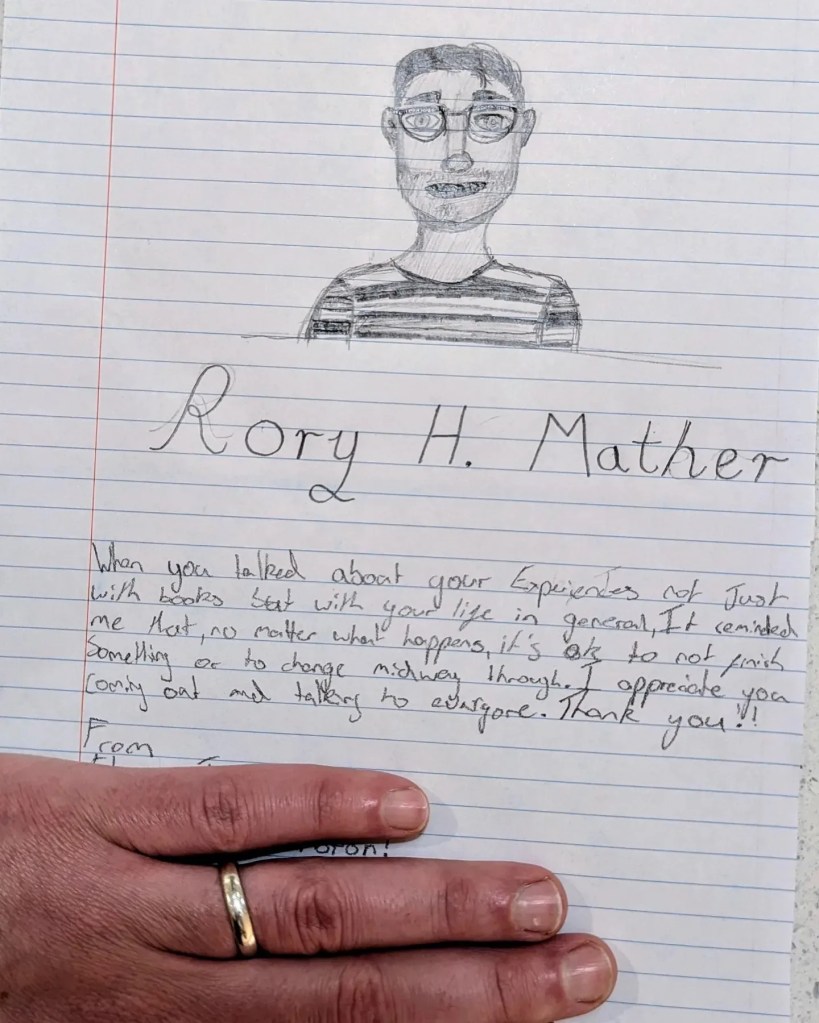 Rory H. Mather
When you talked about your Experiences not Just
with books but with your life in general, It reminded
me that, no matter what happens, it's ok to not finish
Something or to change midway through. I appreciate you
coming out and talking to everyone. Thank you!!
From